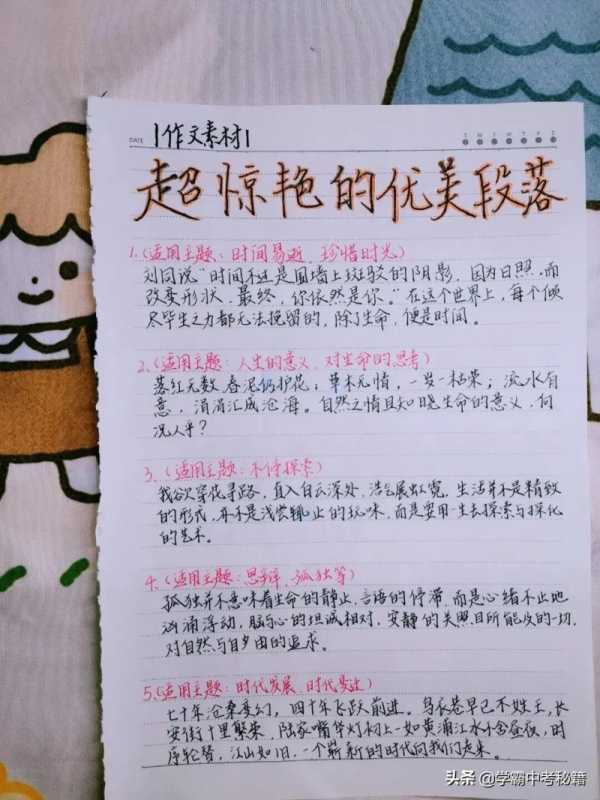 DATE
作文素材
超惊艳的优美段落
1.(适用主题:时间易逝、珍惜时光)
刘同说"时间不过是围墙上斑驳的阴影,因为日照,而
改变形状,最终,你依然是你。"在这个世界上,每个倾
尽毕生之力都无法挽留的,除了生命,便是时间。
2.(适用主题:人生的意义、对生命的思考)
落红无数,春泥仍护花;草木无情,一岁一枯荣;流水有
意,涓涓汇成沧海。自然之情且知晓生命的意义,何
况人乎?
3.(适用主题:不停探索)
我欲穿花寻路,直入白云深处,浩气展虹霓。生活并不是精致
的形式,并不是浅尝辄止的玩味,而是要用一生去探索与深化
的艺术。
4.(适用主题:思辩、孤独等)
孤独并不意味着生命的静止,言语的停滞,而是心绪不止地
汹涌浮动,脑与心的坦诚相对,安静的关照目所能及的一切,
对自然与自由的追求。
5.(适用主题:时代发展、时代变迁)
七十年沧桑变幻,四十年飞跃前进。乌衣巷早已不姓王,长
安街十里繁荣,陆家嘴华灯初上一如黄浦江水不舍昼夜,时
序轮替,江山如旧,一个崭新的时代向我们走来。
头条 @学霸中考秘籍